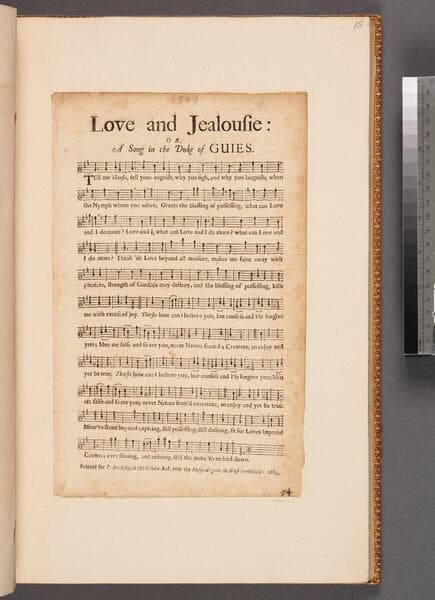 15
(54)
Love and Jealousie:
OR,
A Song in the Duke of GUIES.
Tell me Thirsis, tell your anguish, why you sigh, and why you languish; when
the Nymph whom you adore, Grants the blessing of possessing, what can Love
and I do more? Love and I, what can Love and I do more? what can Love and
I do more? Think 'tis Love beyond all measure, makes me faint away with
pleasure, strength of Cordials may destroy, and the blessing of possessing, kills
me with excess of joy. Thirsis how can I believe you, but confess and I'le forgive
you; Men are false and so are you, never Nature fram'd a Creature, to enjoy and
yet be true. Thirsis how can I believe you, but confess and I'le forgive you; Men
are false and so are you; never Nature fram'd a creature, to enjoy and yet be true.
Mine's a flame beyond expiring, still possessing, still desiring, fit for Loves Imperial
Crown; ever shining, and refining, still the more 'tis melted down.
Printed for P. Brooksby, at the Golden-Ball, near the Hospital-gate, in West-Smithfield: 1683.
54